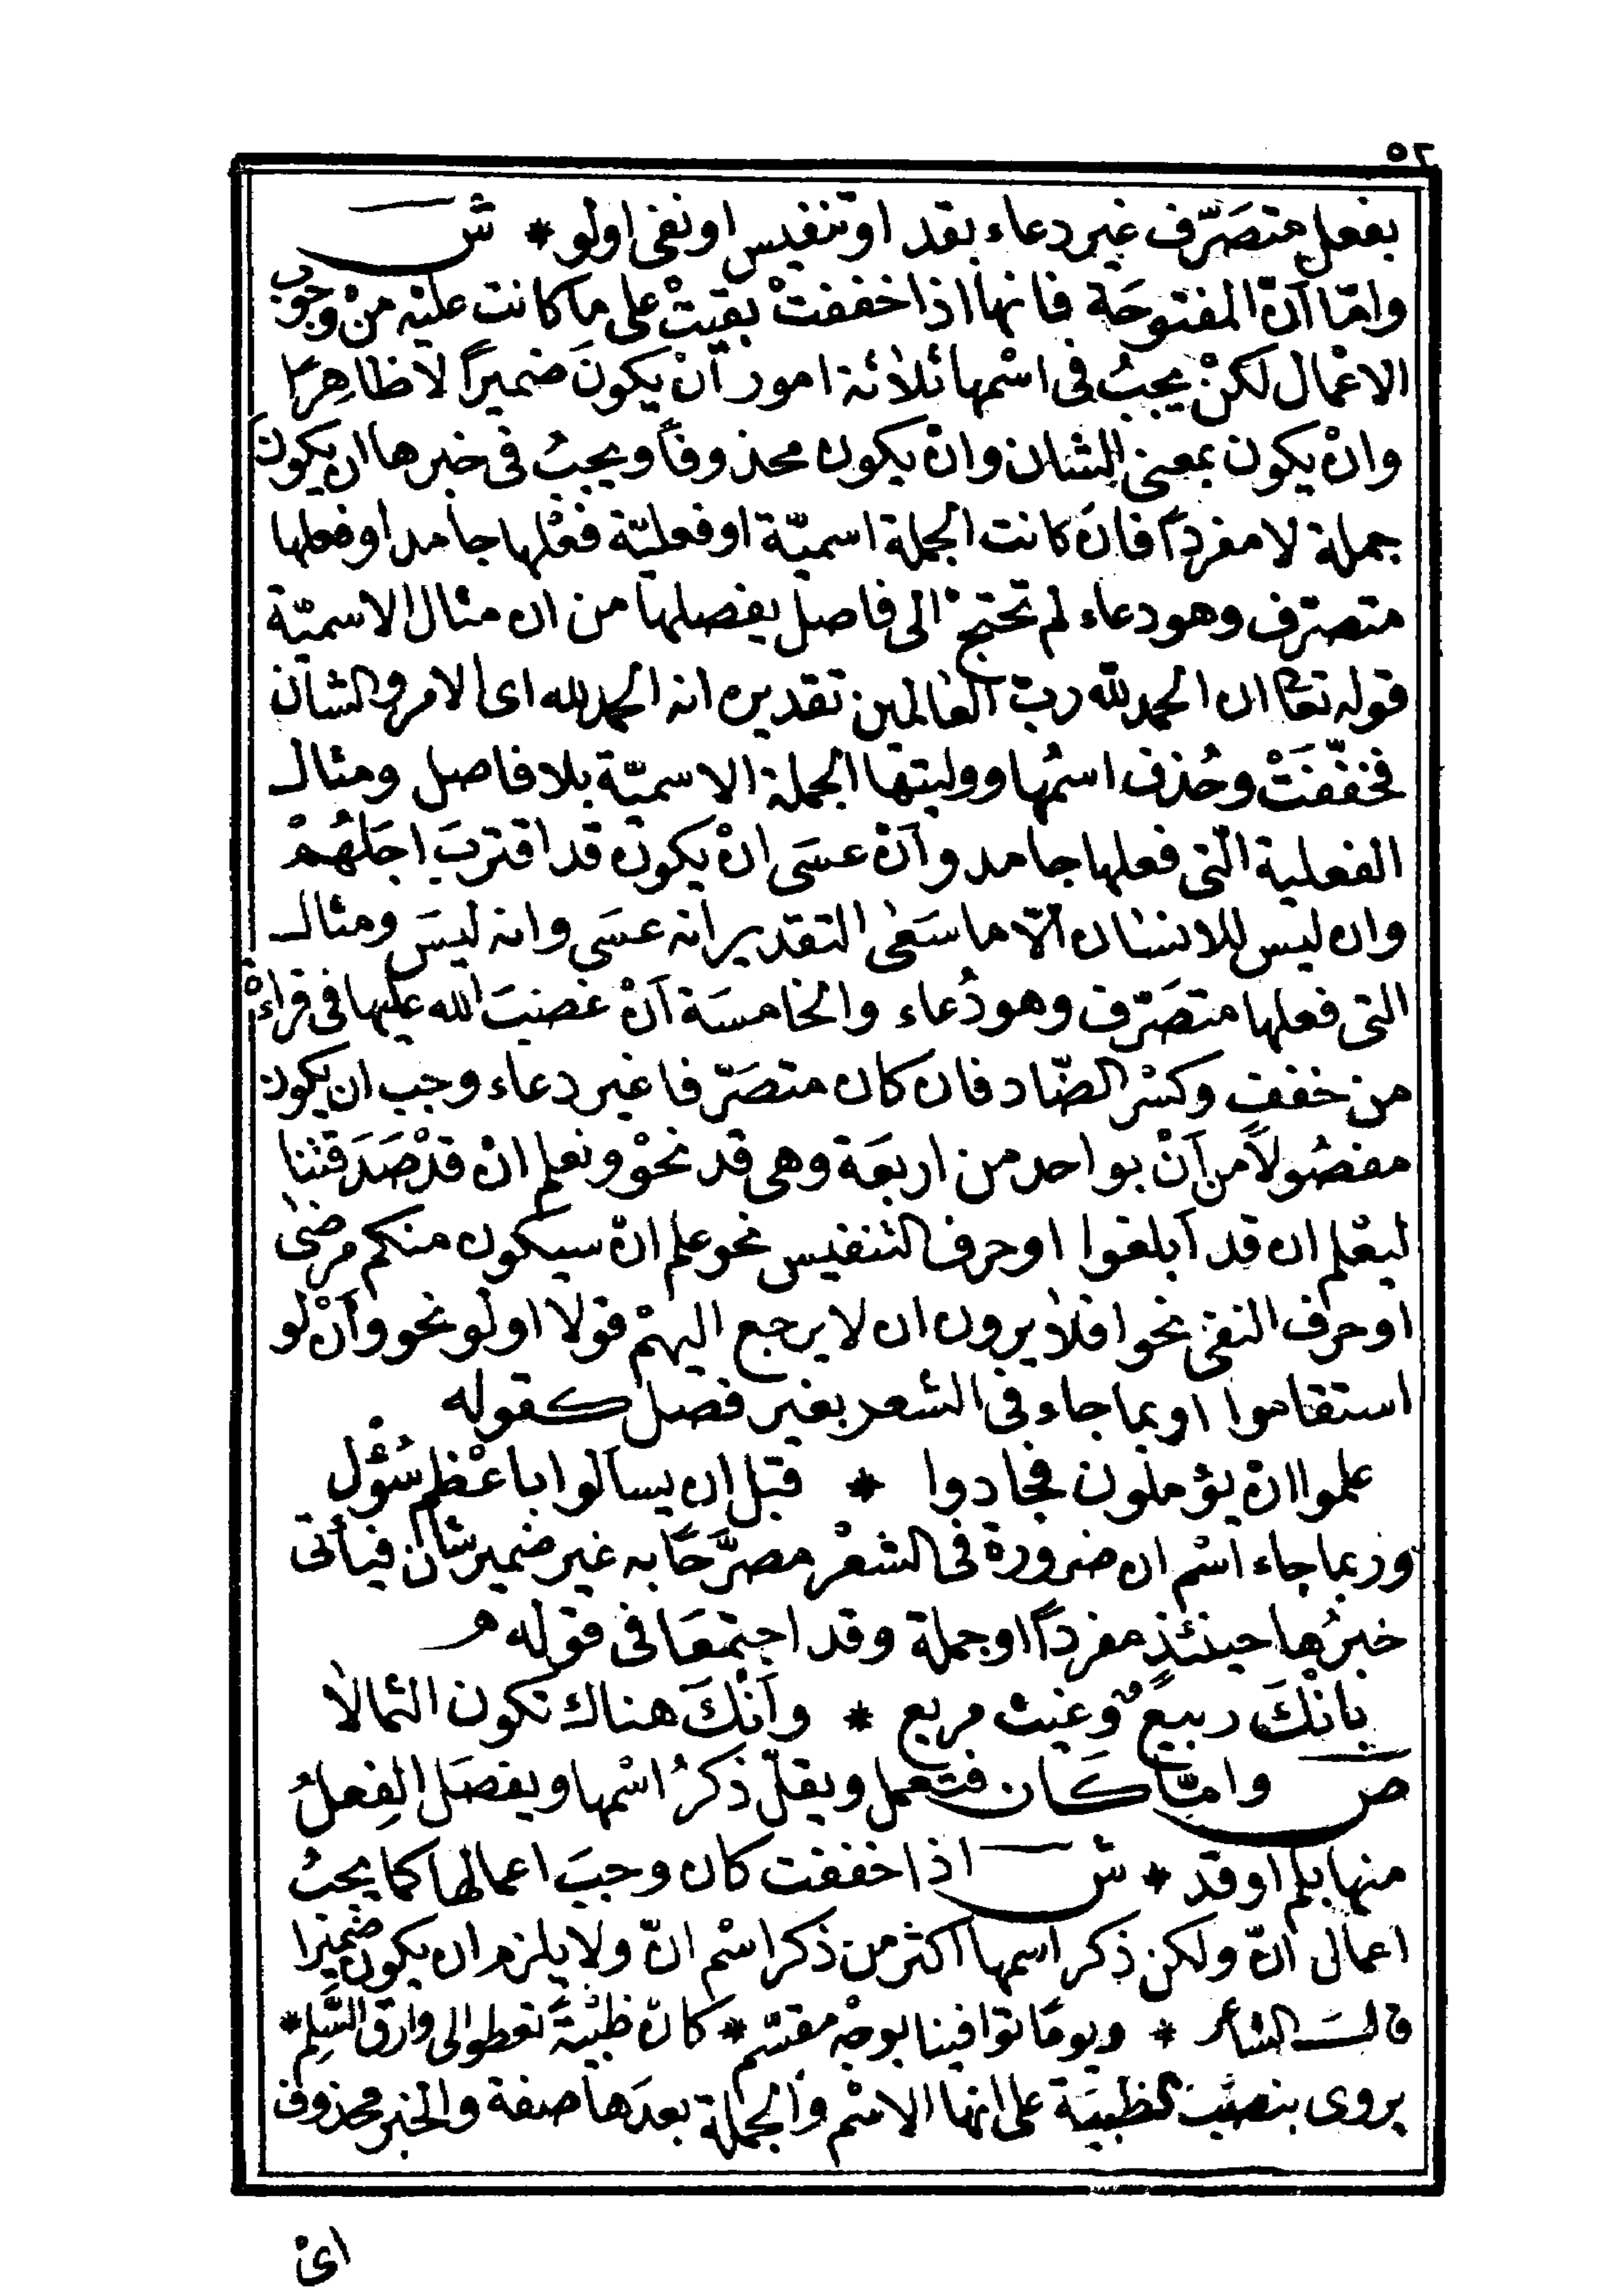 ٥٢
بفعل متصَرّف غير دعاء بقد او تنفيس او نفى اولو * ش
وامّا اَنّ المفتوحَة فانها اذا خففتْ بقيتْ على ما كانت عليْه منْ وجوب
الاعْمال لكنْ يجبُ فى اسْمها ثلاثة امور اَنْ يكونَ ضميرًا لا ظاهِرًا
وانْ يكون بمعنى الشان وانْ يكون محذوفاً ويجبُ فى خبرها ان يكون
جملة لا مفردًا فانْ كانت الجملة اسميّة او فعليّة فعْلها جامد او فعلها
متصرّف وهو دعاء لم تحتجْ الى فاصل يفصلها من ان مثال الاسميّة
قوله تعا ان الحمد لله ربّ العالمين تقديره انه الحمد لله اى الامر والشان
فخفّفَتْ وحُذف اسمُها ووليتها الجملة الاسميّة بلا فاصل ومثال
الفعلية التى فعلها جامد واَنْ عسَى انْ يكون قد اقتربَ اجَلُهُمْ
وان ليس للانسان الّا ما سَعٰى التقدير انه عسَى وانه ليسَ ومثال
التى فعلها متصَرّف وهو دُعاء والخامسَة اَنْ غضبَ الله عليها فى قراءْ
من خفف وكسْر الضّاد فان كان متصَرّفا غير دعاء وجب ان يكون
مفصُولاً من اَنْ بواحد من اربعَة وهى قد نحْو ونعلم انْ قدْ صَدَقتنا
ليعْلم ان قد اَبلغوا او حرف التنفيس نحو علم انْ سيكون منكم مرضٰى
او حرف النفى نحو افلا يرون ان لا يرجع اليهمْ قولا اولو نحو واَنْ لو
استقاموا اوبما جاء فى الشعر بغير فصل كقوله
علموا انْ يؤملون فجادوا * قبل ان يسالوا باعْظم سُؤْل
وربما جاء اسْم ان ضرورة فى الشعْر مصرَّحًا به غير ضمير شان فيأتى
خبرُها حينئذٍ مفردًا او جملة وقد اجتمعَا فى قوله
بانْكَ ربيعٌ وغيث مريع * واَنْكَ هناك تكون الثمالا
ص وامّا كَان فتعمل ويقلّ ذكرُ اسْمها ويفصَل الفِعلُ
منها بلم او قد * ش اذا خففت كان وجبَ اعمالها كما يجبُ
اعمال انّ ولكن ذكر اسمها اكثر من ذكر اسْم انّ ولا يلزم ان يكون ضميرا
قالَ الشاعر * ويومًا توافينا بوجْه مقسّم * كانْ ظبْيَةً تعطوالى وارق السَّلِم *
يروى بنصْب الظبيَة على انها الاسْم والجملة بعدَها صفة والخبر محذوف
اىْ